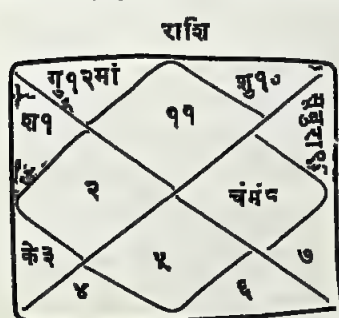 राशि
गु१२मां
शु१०
श१
११
सूबुरा९
२
चंमं८
के३
५
७
४
६